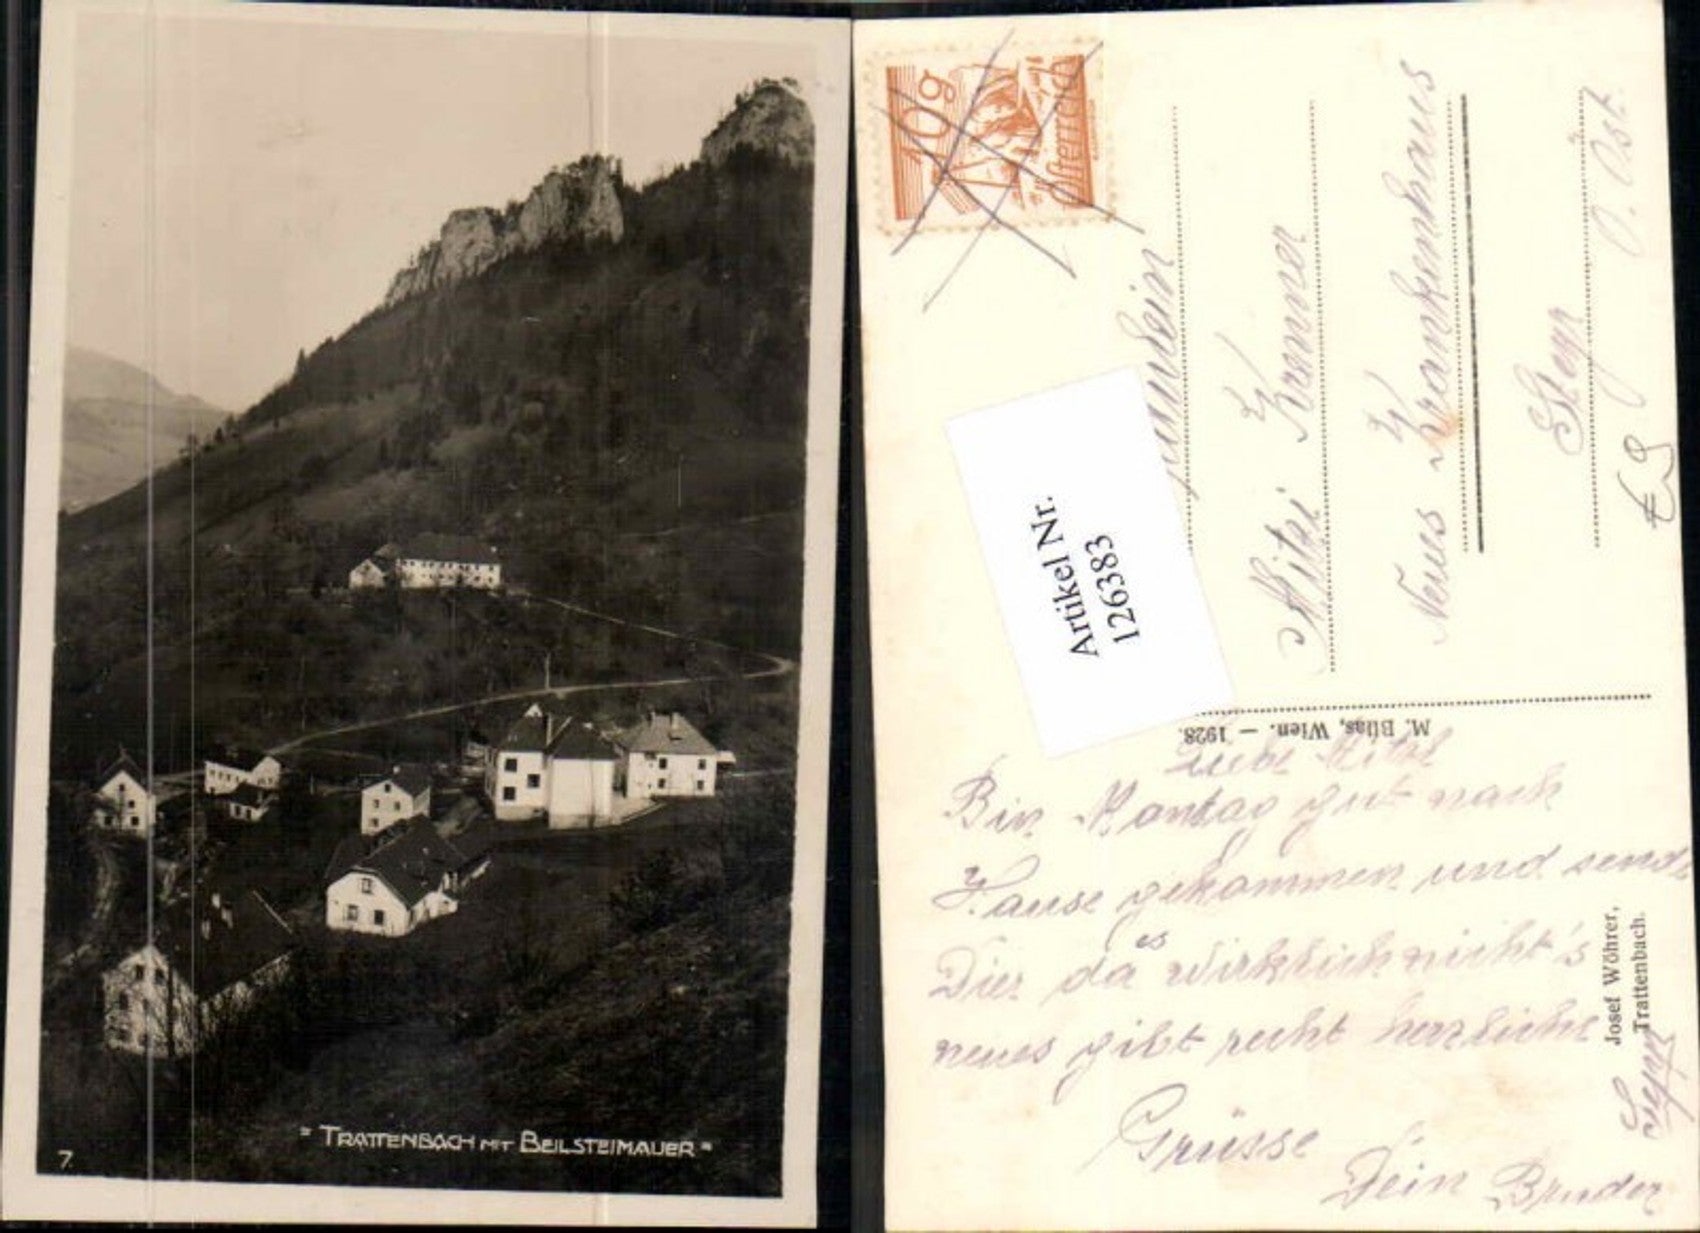 = TRATTENBACH MIT BEILSTEIMAUER =
7.
10g
Österreich
Artikel Nr.
126383
Mitzi Kranner
Neues Krankenhaus
Steyr
O. Öst.
€ 9
M. Bilas, Wien. — 1928.
Josef Wöhrer,
Trattenbach.
Liebe Mitzi
Bin Montag gut nach
Hause gekommen und sende
Dir da es wirklich nicht's
neues gibt recht herzliche
Grüsse
Dein Bruder
Sepp